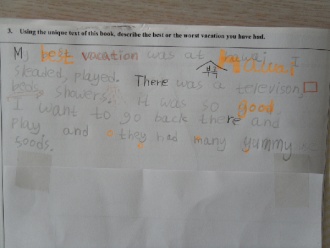 3. Using the unique text of this book, describe the best or the worst vacation you have had.
My best vacation was at I
skated, played. There was a televison,
showers. It was so good
I want to go back there and
play, and they had many yummy
foods.